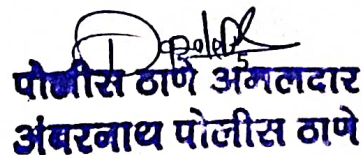 पोलीस ठाणे अंमलदार
अंबरनाथ पोलीस ठाणे